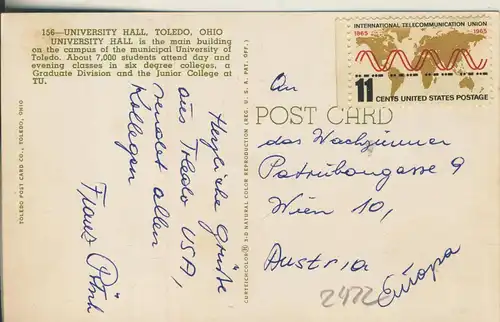 156—UNIVERSITY HALL, TOLEDO, OHIO
UNIVERSITY HALL is the main building
on the campus of the municipal University of
Toledo. About 7,000 students attend day and
evening classes in six degree colleges, a
Graduate Division and the Junior College at
TU.
Herzliche Grüße
aus Toledo USA,
sendet allen
Kollegen
Franz
TOLEDO POST CARD CO., TOLEDO, OHIO
CURTEICHCOLOR® 3-D NATURAL COLOR REPRODUCTION (REG. U. S. A. PAT. OFF.)
INTERNATIONAL TELECOMMUNICATION UNION
1865 1965
11 CENTS UNITED STATES POSTAGE
POST CARD
An
das Wachzimmer
9
Wien 10,
Austria
Europa